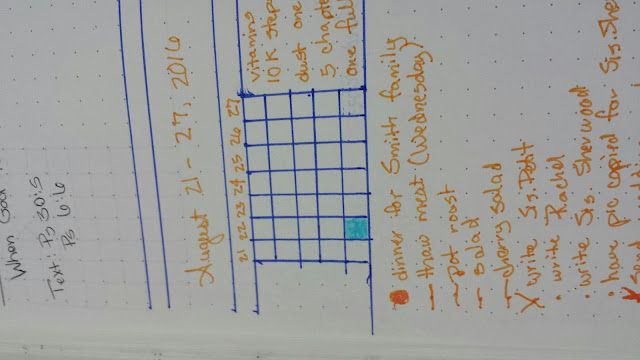 When God
Text: Ps 30:5
Ps 6:6
August 21 - 27, 2016
21 22 23 24 25 26 27
vitamins
10K steps
dust one
5 chapte
one full
dinner for Smith family
— thaw meat (Wednesday)
— pot roast
— salad
— cherry salad
X write Sis.
• write Rachel
• write Sis. Sherwood
• have pic copied for Sis. Sher